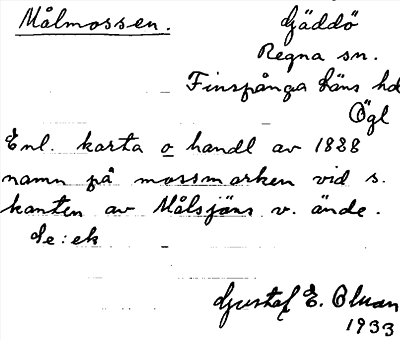 Målmossen.
Gäddö
Regna sn.
Finspånga läns hd
Ögl
Enl. karta o handl av 1828
namn på mossmarken vid s.
kanten av Målsjäns v. ände.
Se: ek
Gustaf E. Olson
1933